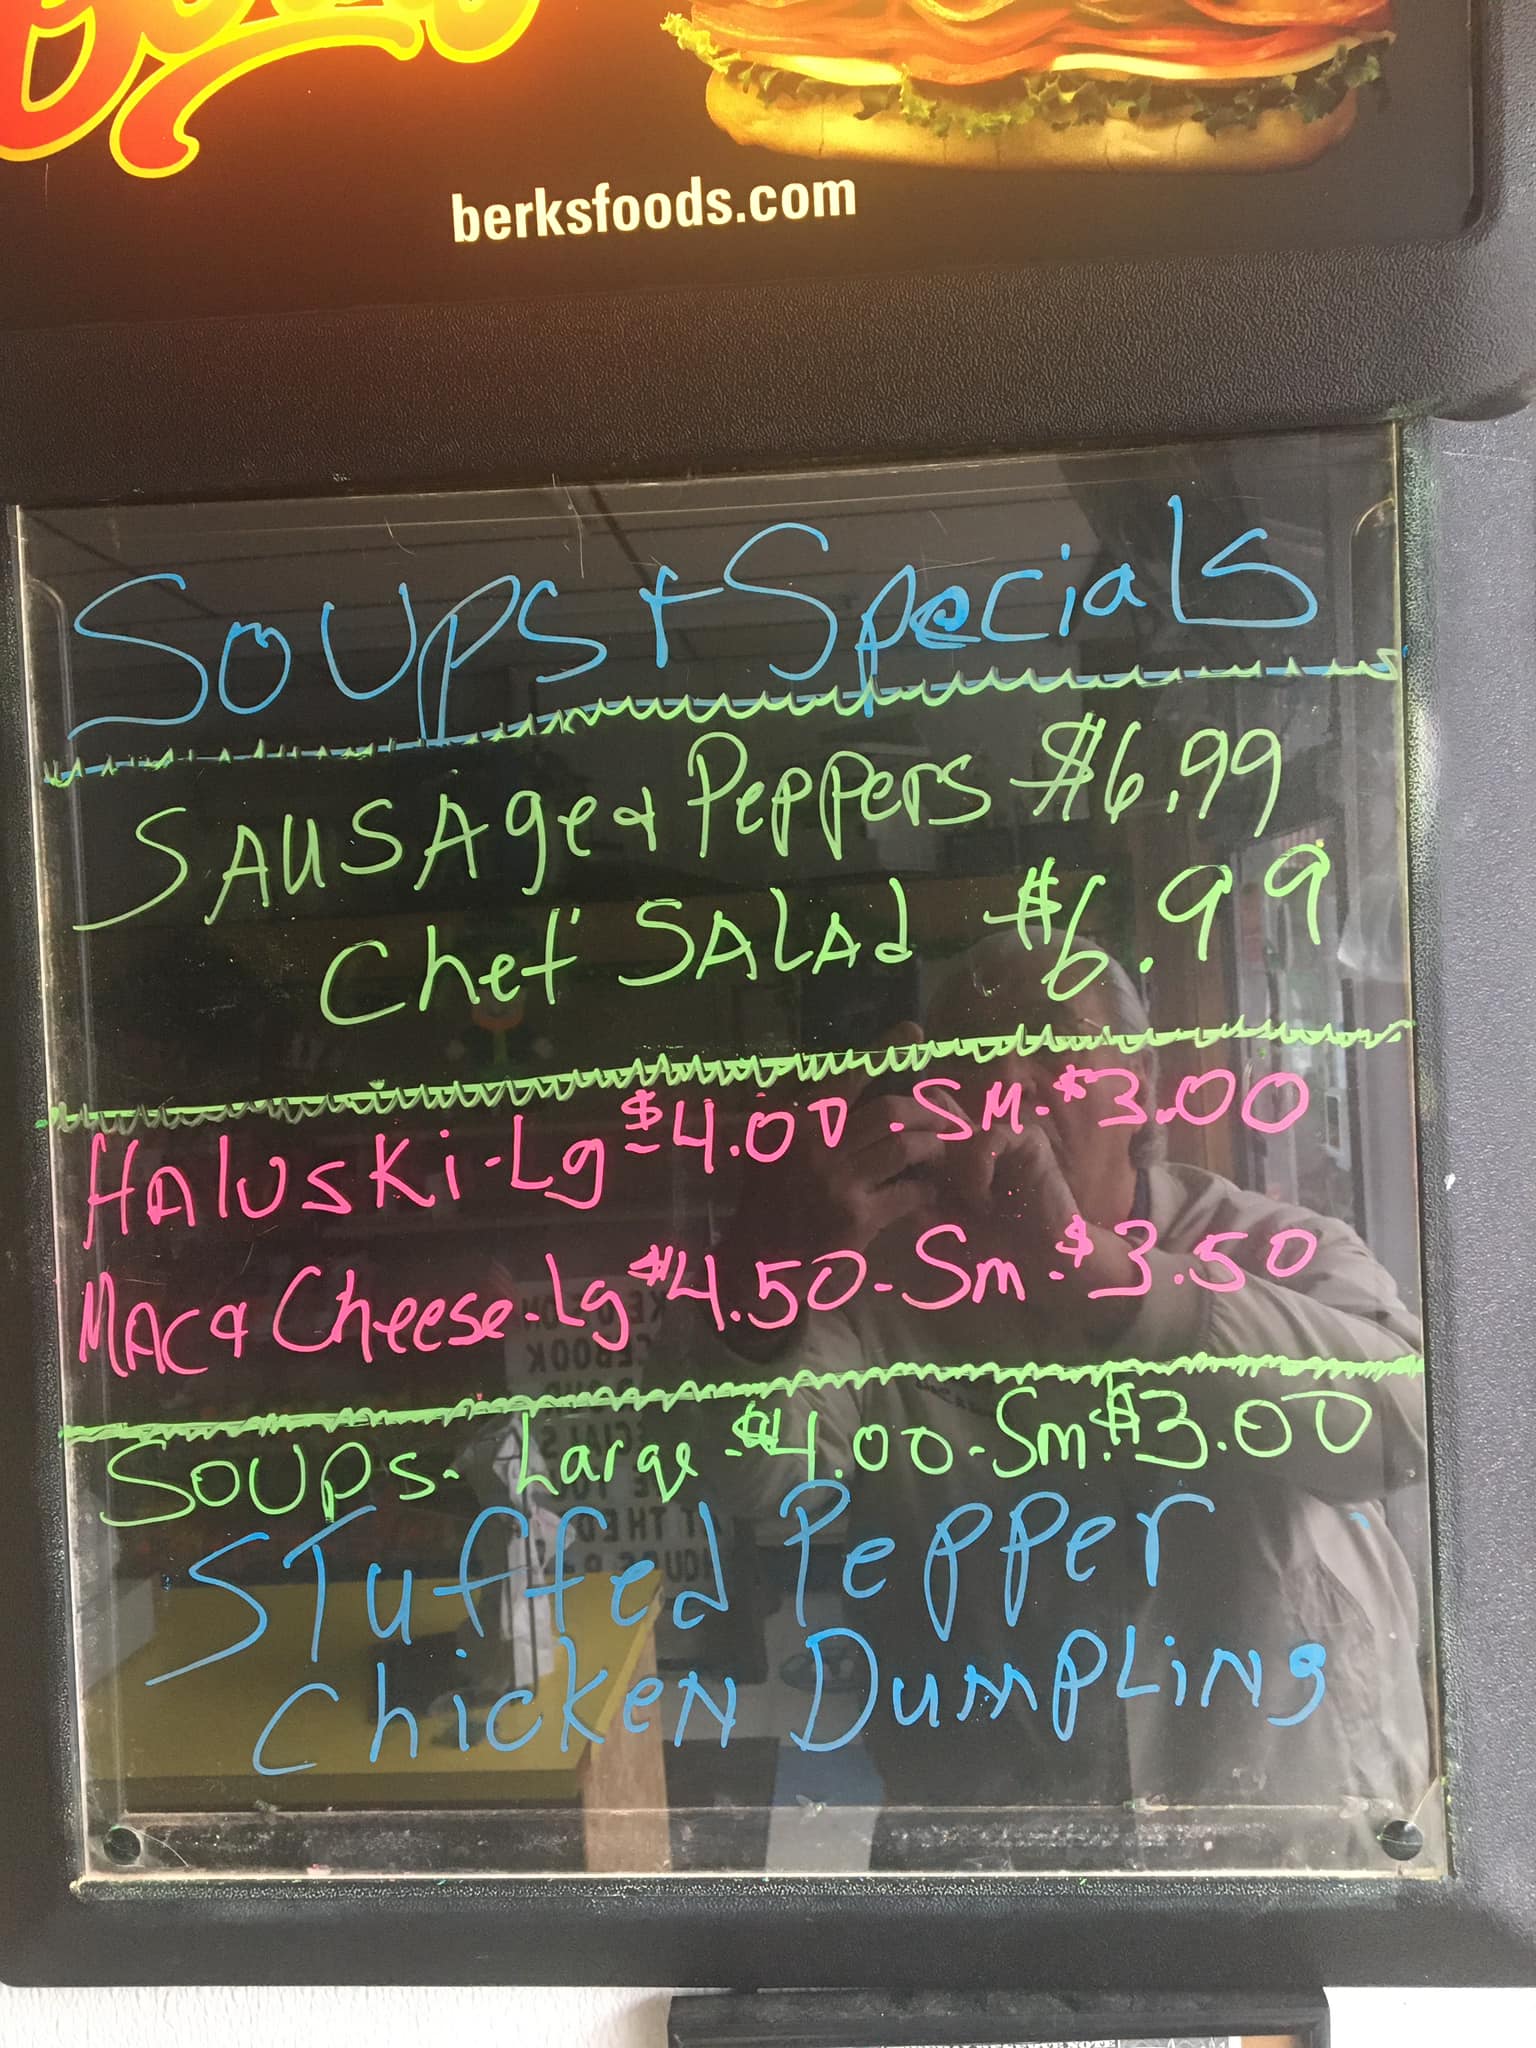 berksfoods.com
Soups + Specials
SAUSAge & Peppers $6.99
Chef SALAd $6.99
HALUSKi-Lg $4.00-SM-$3.00
MAC & Cheese-Lg $4.50-Sm-$3.50
SOUPS- Large-$4.00-Sm-$3.00
STuffed Pepper
ChickeN DumpLiNg